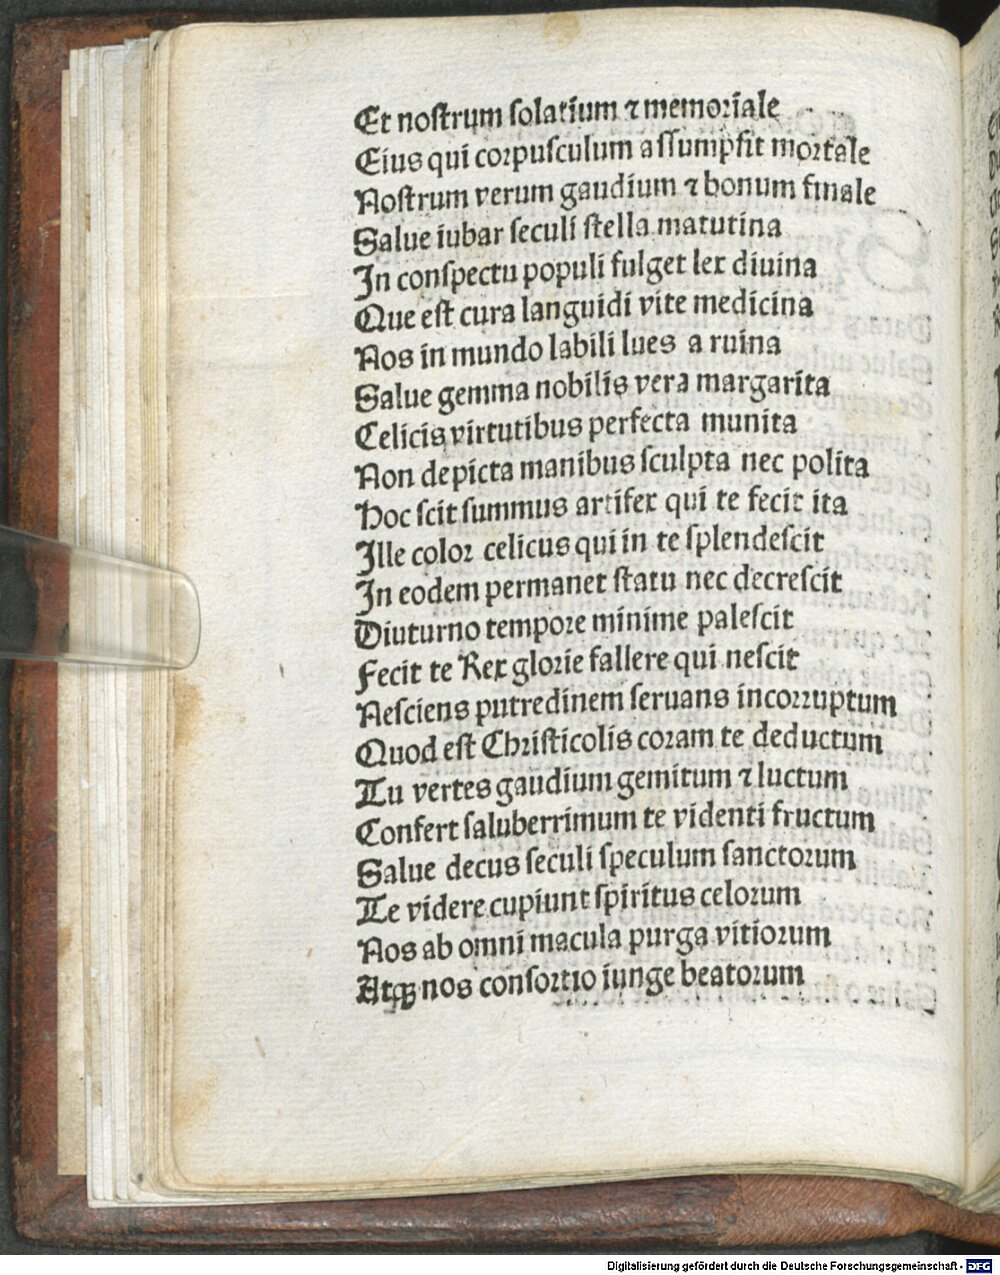 Et nostrum solatium ⁊ memoriale
Eius qui corpusculum assumpsit mortale
Nostrum verum gaudium ⁊ bonum finale
Salue iubar seculi stella matutina
In conspectu populi fulget lex diuina
Que est cura languidi vite medicina
Nos in mundo labili lues a ruina
Salue gemma nobilis vera margarita
Celicis virtutibus perfecta munita
Non depicta manibus sculpta nec polita
Hoc scit summus artifex qui te fecit ita
Ille color celicus qui in te splendescit
In eodem permanet statu nec decrescit
Diuturno tempore minime palescit
Fecit te Rex glorie fallere qui nescit
Nesciens putredinem seruans incorruptum
Quod est Christicolis coram te deductum
Tu vertes gaudium gemitum ⁊ luctum
Confert saluberrimum te videnti fructum
Salue decus seculi speculum sanctorum
Te videre cupiunt spiritus celorum
Nos ab omni macula purga vitiorum
Atqꝫ nos consortio iunge beatorum
Digitalisierung gefördert durch die Deutsche Forschungsgemeinschaft - DFG